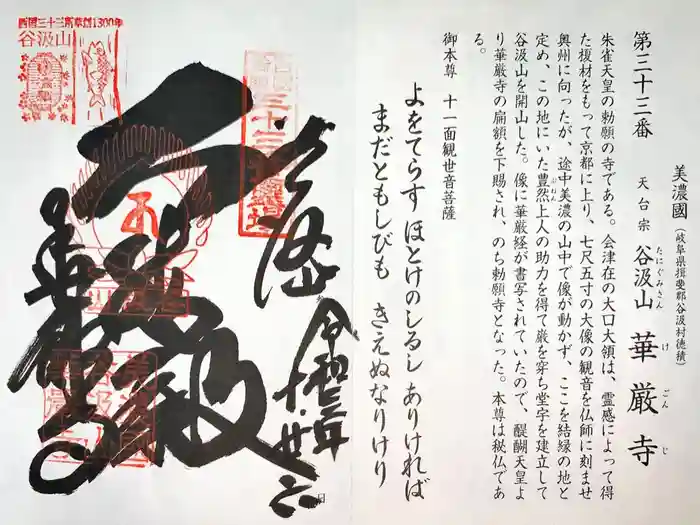 美濃國(岐阜県揖斐郡谷汲村徳積)
第三十三番 天台宗 谷汲山 華厳寺
たにぐみさん けごんじ
朱雀天皇の勅願の寺である。会津在の大口大領は、霊感によって得
た榎材をもって京都に上り、七尺五寸の大像の観音を仏師に刻ませ
奥州に向ったが、途中美濃の山中で像が動かず、ここを結縁の地と
定め、この地にいた豊然上人の助力を得て巌を穿ち堂宇を建立して
ぶねん
谷汲山を開山した。像に華厳経が書写されていたので、醍醐天皇よ
り華厳寺の扁額を下賜され、のち勅願寺となった。本尊は秘仏であ
る。
御本尊 十一面観世音菩薩
よをてらす ほとけのしるし ありければ
まだともしびも きえぬなりけり
西国三十三所草創1300年
谷汲山
奉拝
令和二年
十、廿六日
華厳寺